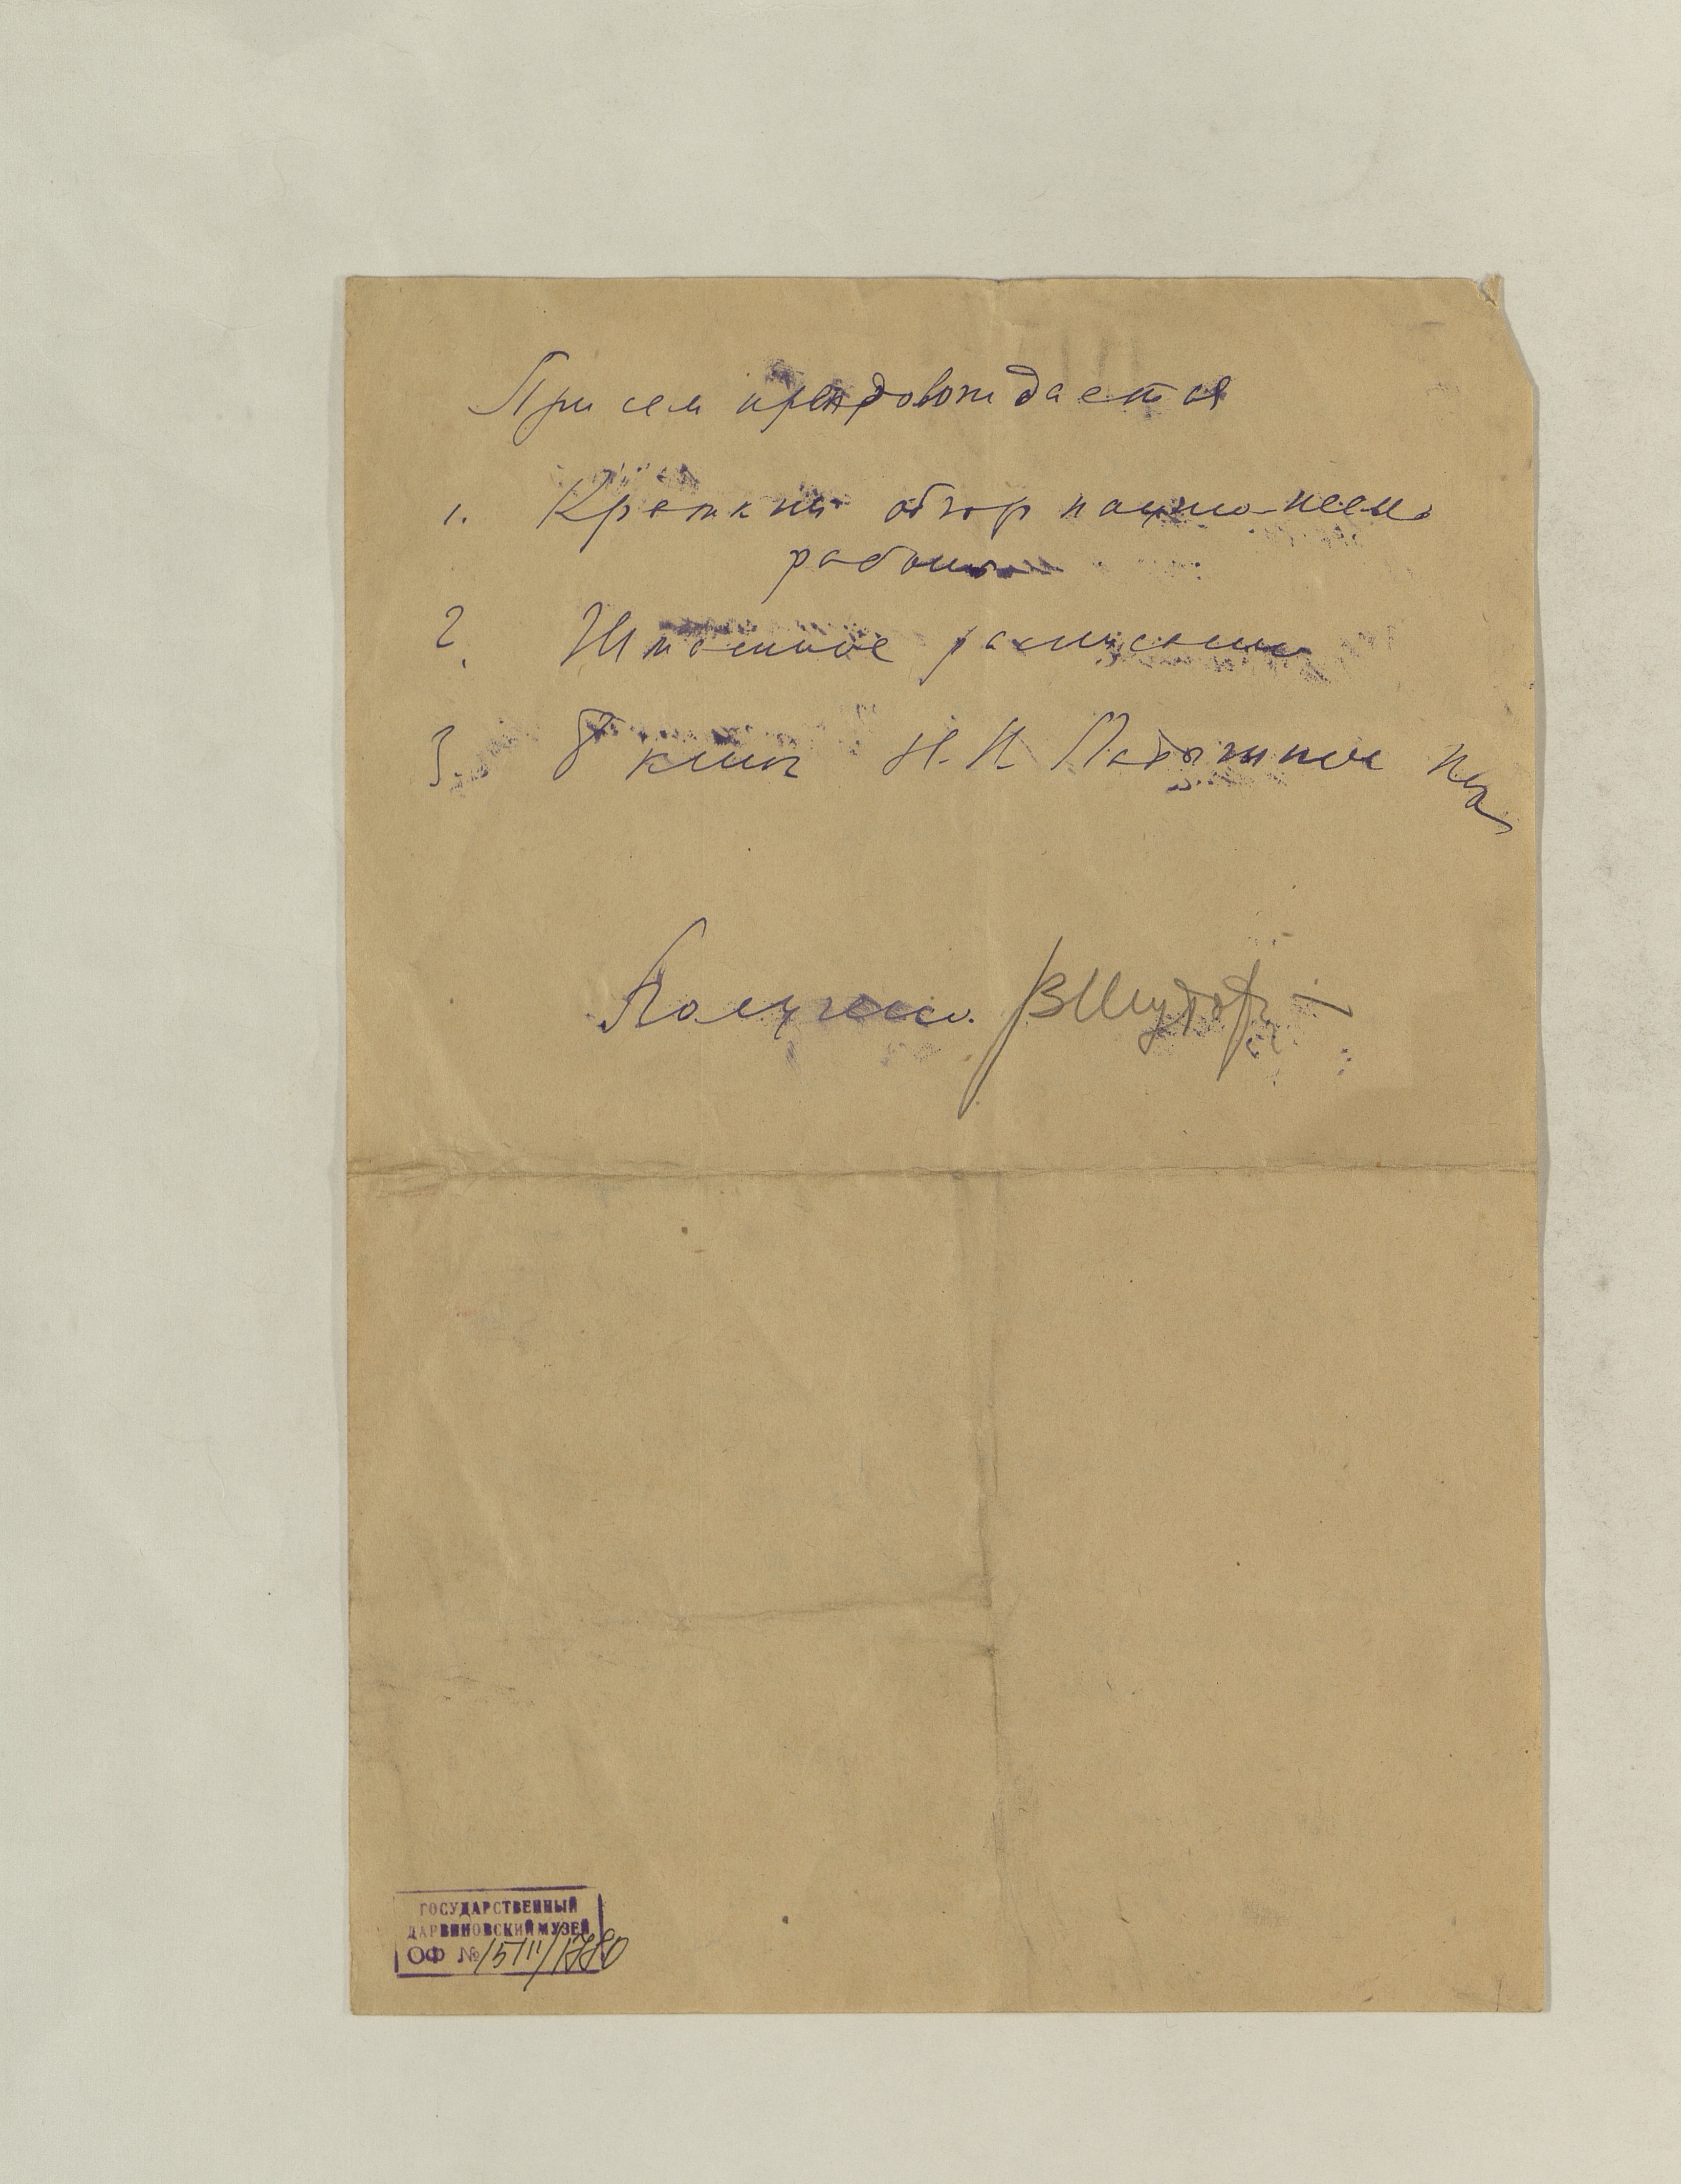 При сем препровождается
1. Краткий обзор научно-иссл.
работы
2. Штатное расписание
3. 8 книг Н. Н. Ладыгиной
Получено.
ГОСУДАРСТВЕННЫЙ
ДАРВИНОВСКИЙ МУЗЕЙ
ОФ №